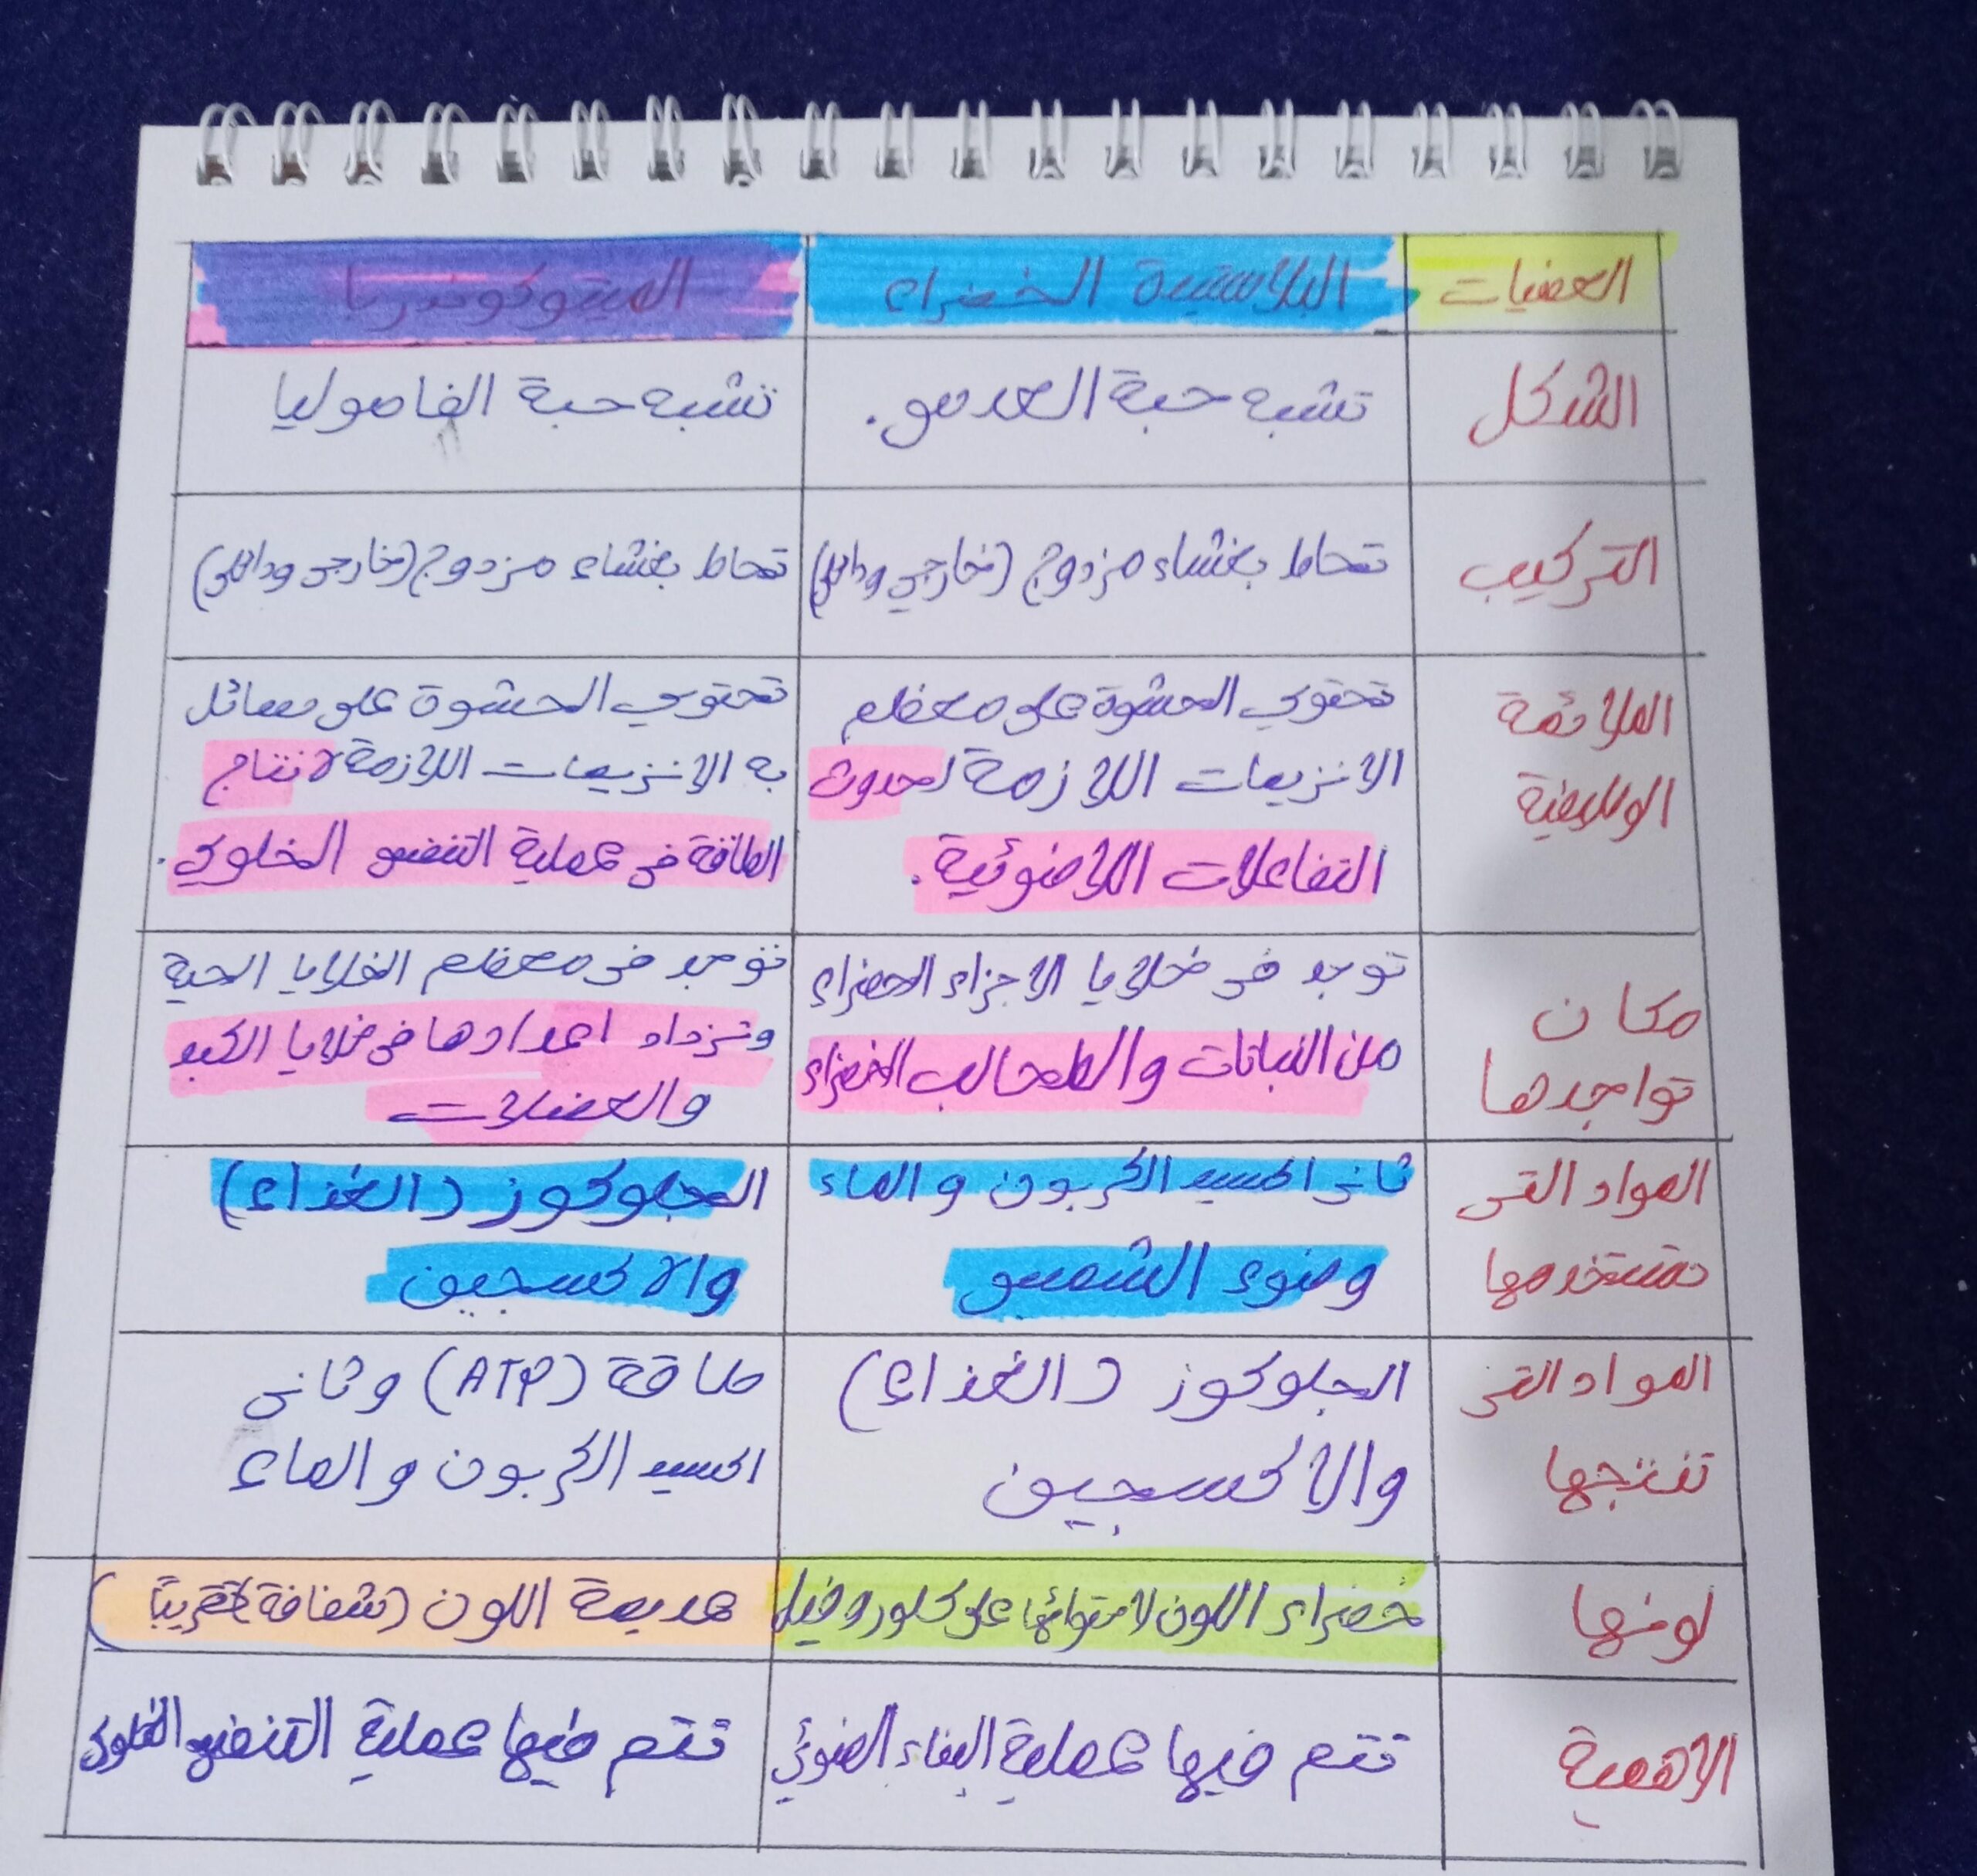 العضيات
البلاستيدة الخضراء
الميتوكوندريا
الشكل
تشبه حبة العدس.
تشبه حبة الفاصوليا
التركيب
تحاط بغشاء مزدوج (خارجي وداخلي)
تحاط بغشاء مزدوج (خارجى وداخلى)
الملائمة
الوظيفية
تحتوى الحشوة على معظم
الانزيمات اللازمة لحدوث
التفاعلات اللاضوئية.
تحتوي الحشوة على سائل
به الانزيمات اللازمة لانتاج
الطاقة فى عملية التنفس الخلوى.
مكان
تواجدها
توجد فى خلايا الاجزاء الخضراء
من النباتات والطحالب الخضراء
توجد فى معظم الخلايا الحية
وتزداد اعدادها فى خلايا الكبد
والعضلات
المواد التى
تستخدمها
ثانى اكسيد الكربون والماء
وضوء الشمس
الجلوكوز (الغذاء)
والاكسجين
المواد التى
تنتجها
الجلوكوز (الغذاء)
والاكسجين
طاقة (ATP) وثانى
اكسيد الكربون والماء
لونها
خضراء اللون لاحتوائها على كلوروفيل
عديمة اللون (شفافة تقريباً)
الاهمية
تتم فيها عملية البناء الضوئي
تتم فيها عملية التنفس الخلوى